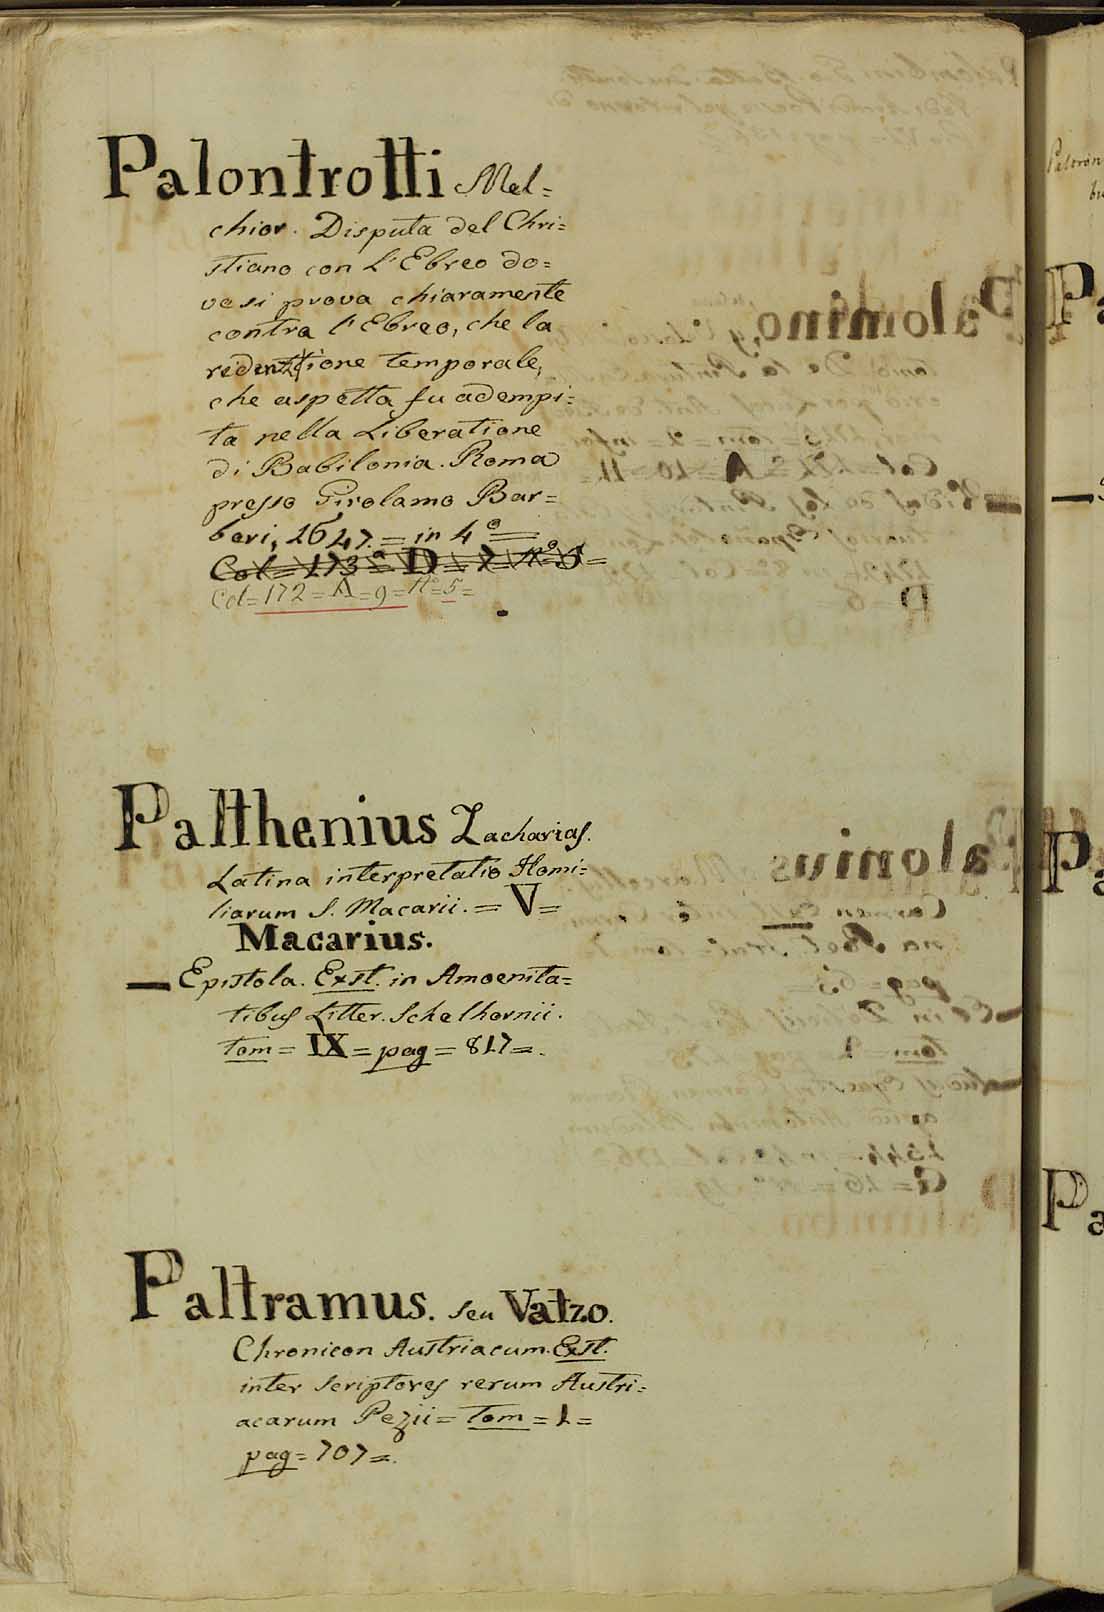 Palontrotti Mel=
chior. Disputa del Chri=
stiano con l'Ebreo do=
ve si prova chiaramente
contra l'Ebreo, che la
redentione temporale,
che aspetta fu adempi=
ta nella Liberatione
di Babilonia. Roma
presso Girolamo Bar=
beri, 1647. = in 4° =
Col = 173 = D = 7 = N° 5 =
Col = 172 = A = 9 = N° = 5 =
Palthenius Zacharias.
Latina interpretatio Homi=
liarum S. Macarii. = V =
Macarius.
— Epistola. Exst. in Amoenita=
tibus Litter. Schelhornii.
tom = IX = pag = 817 = .
Paltramus. seu Vatzo.
Chronicon Austriacum. Exst.
inter Scriptores rerum Austri=
acarum Pezii = tom = 1 =
pag = 707 = .